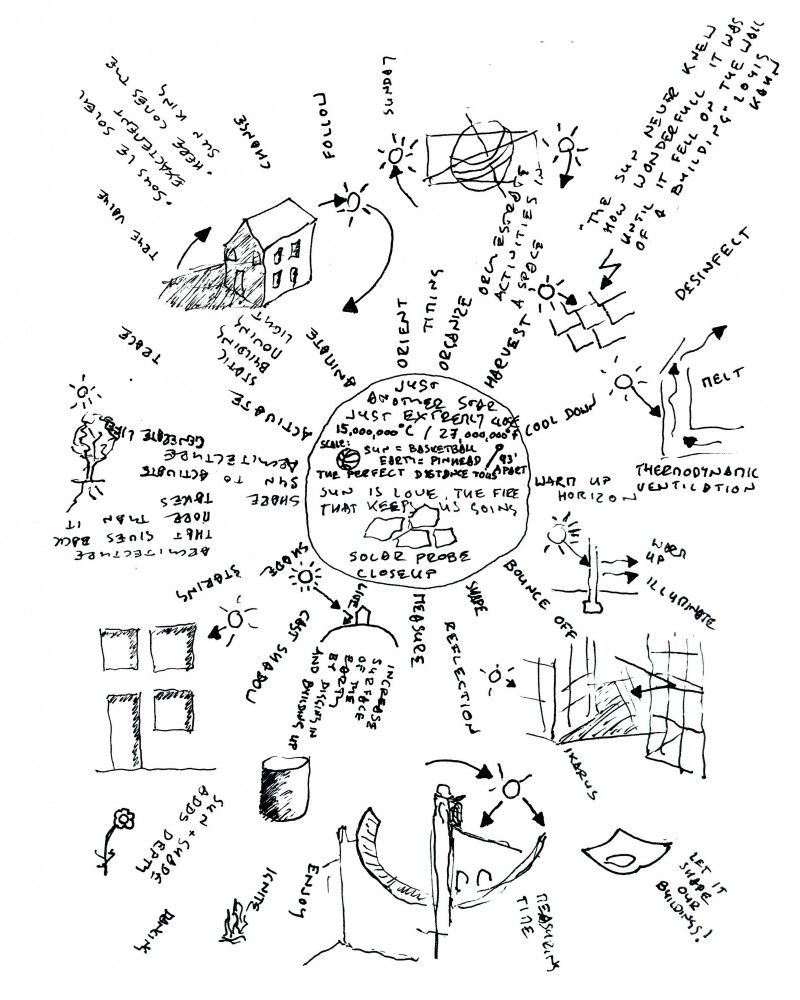 JUST
ANOTHER STAR
JUST EXTREMLY CLOSE
15,000,000°C / 27,000,000°F
SCALE: SUN = BASKETBALL
EARTH = PINHEAD / 93' APART
THE PERFECT DISTANCE TO US
SUN IS LOVE, THE FIRE
THAT KEEPS US GOING
SOLAR PROBE
CLOSEUP
ORIENT
TIMING
ORGANIZE
ORCHESTRATE
ACTIVITIES IN
A SPACE
HARVEST
"THE SUN NEVER KNEW
HOW WONDERFULL IT WAS
UNTIL IT FELL ON THE WALL
OF A BUILDING" LOUIS
KAHN
DESINFECT
COOL DOWN
MELT
THERMODYNAMIC
VENTILATION
WARM UP
HORIZON
WARM
UP
ILLUMINATE
BOUNCE OFF
IKARUS
SHAPE
REFLECTION
LET IT
SHAPE
OUR
BUILDINGS!
MEASURE
MEASURING
TIME
LIVE
INCREASE
SURFACE
OF THE
EARTH
BY DIGGING IN
AND BUILDING UP
ENJOY
IGNITE
CAST SHADOW
SHADE
STARING
SUN + SHADE
ADDS DEPTH
SHARE
SUN TO ACTIVATE
ARCHITECTURE
GENERATE LIFE
ARCHITECTURE
THAT GIVES BACK
MORE THAN IT
TAKES
ACTIVATE
TRACE
ANIMATE
STATIC
BUILDING
MOVING
LIGHT
TRUE VALUE
• SOUS LE SOLEIL
EXACTEMENT
• HERE COMES THE
SUN KING
CHANGE
FOLLOW
SUNDAY